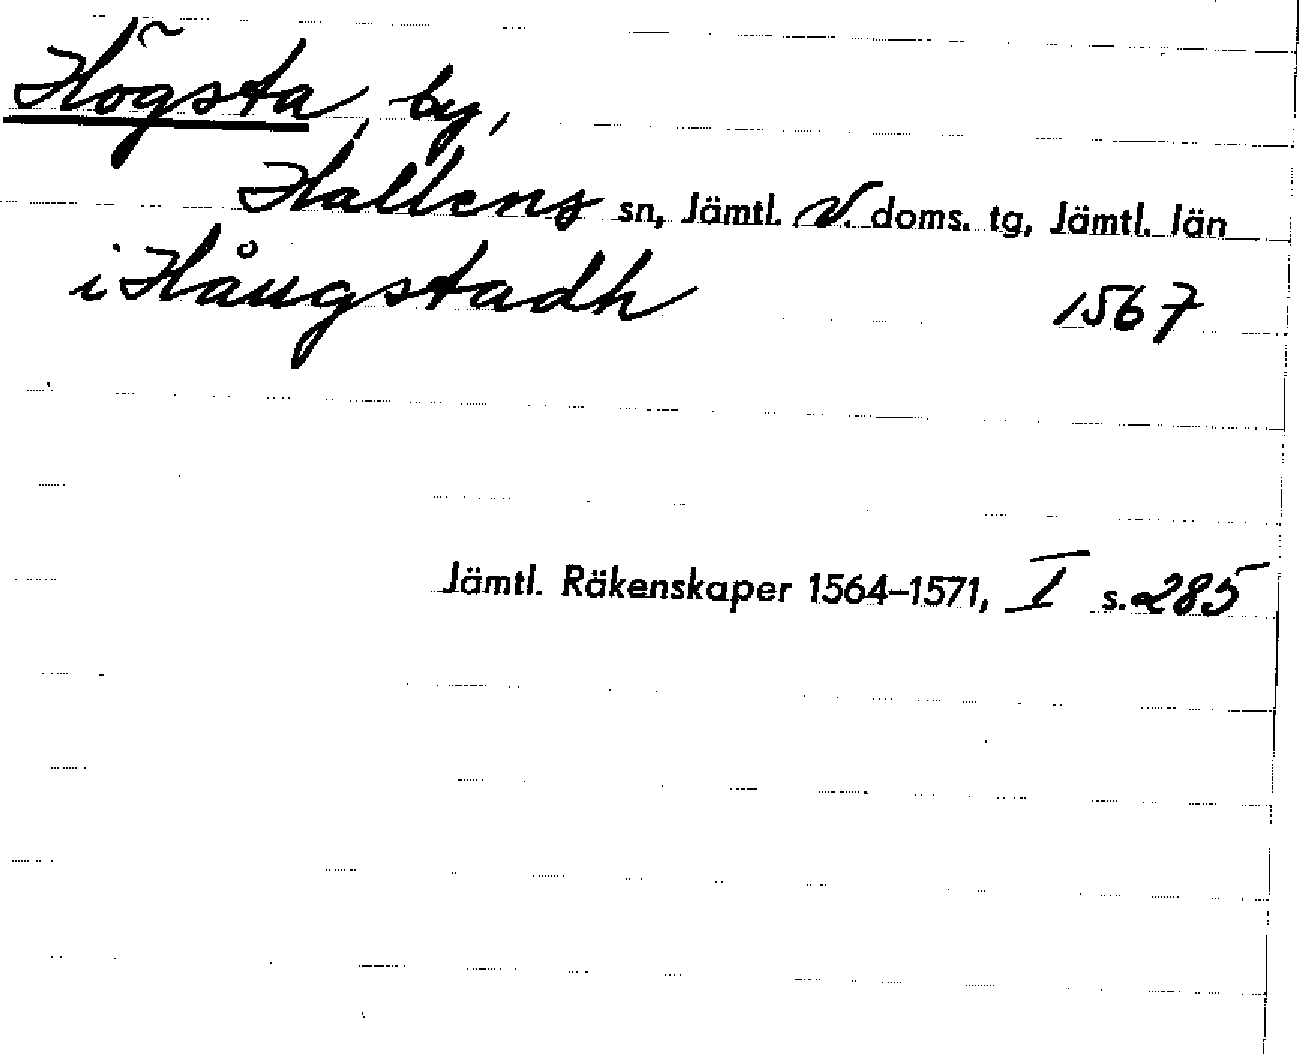 Högsta by,
Hallens sn, Jämtl. V. doms. tg, Jämtl. län
i Hångstadh 1567
Jämtl. Räkenskaper 1564–1571, I s. 285